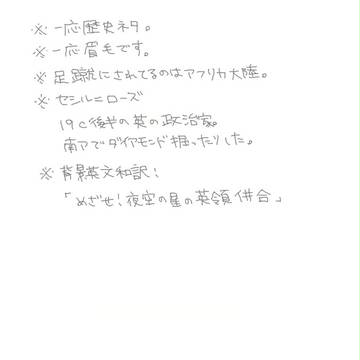 ※一応歴史ネタ。
※一応眉毛です。
※足蹴にされてるのはアフリカ大陸。
※セシル=ローズ
19c後半の英の政治家。
南アでダイアモンド掘ったりした。
※背景英文和訳:
「めざせ!夜空の星の英領併合」